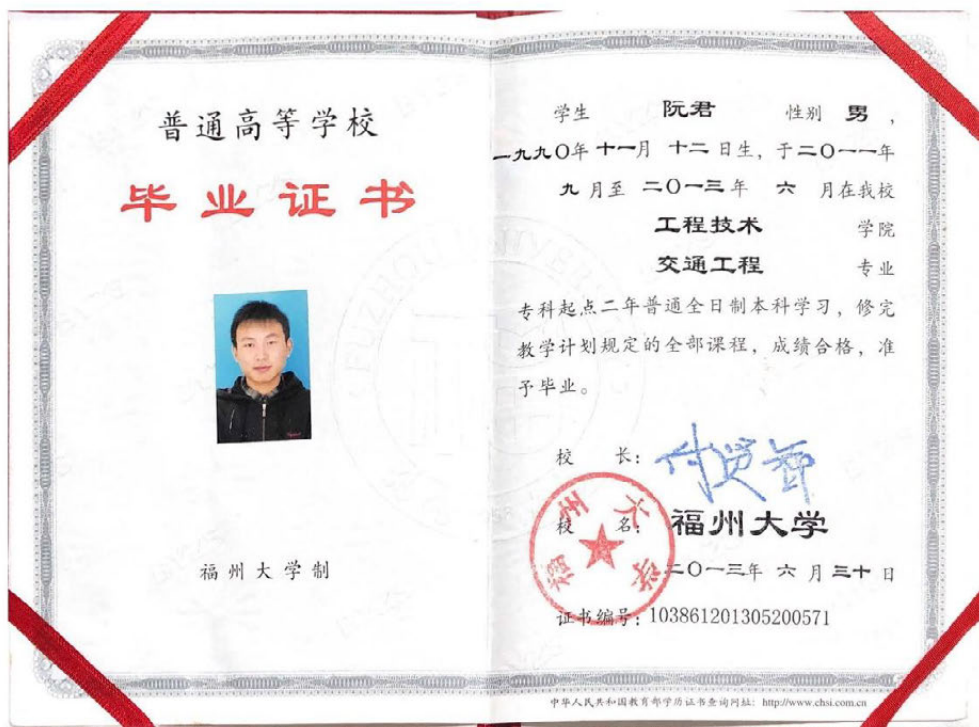 普通高等学校
毕业证书
福州大学制
学生 阮君 性别 男，
一九九〇年 十一月 十二 日生，于二〇一一年
九 月至 二〇一三年 六 月在我校
工程技术 学院
交通工程 专业
专科起点二年普通全日制本科学习，修完
教学计划规定的全部课程，成绩合格，准
予毕业。
校 长：
校 名：福州大学
福州大学
二〇一三年 六 月 三十 日
证书编号：103861201305200571
中华人民共和国教育部学历证书查询网址：http://www.chsi.com.cn